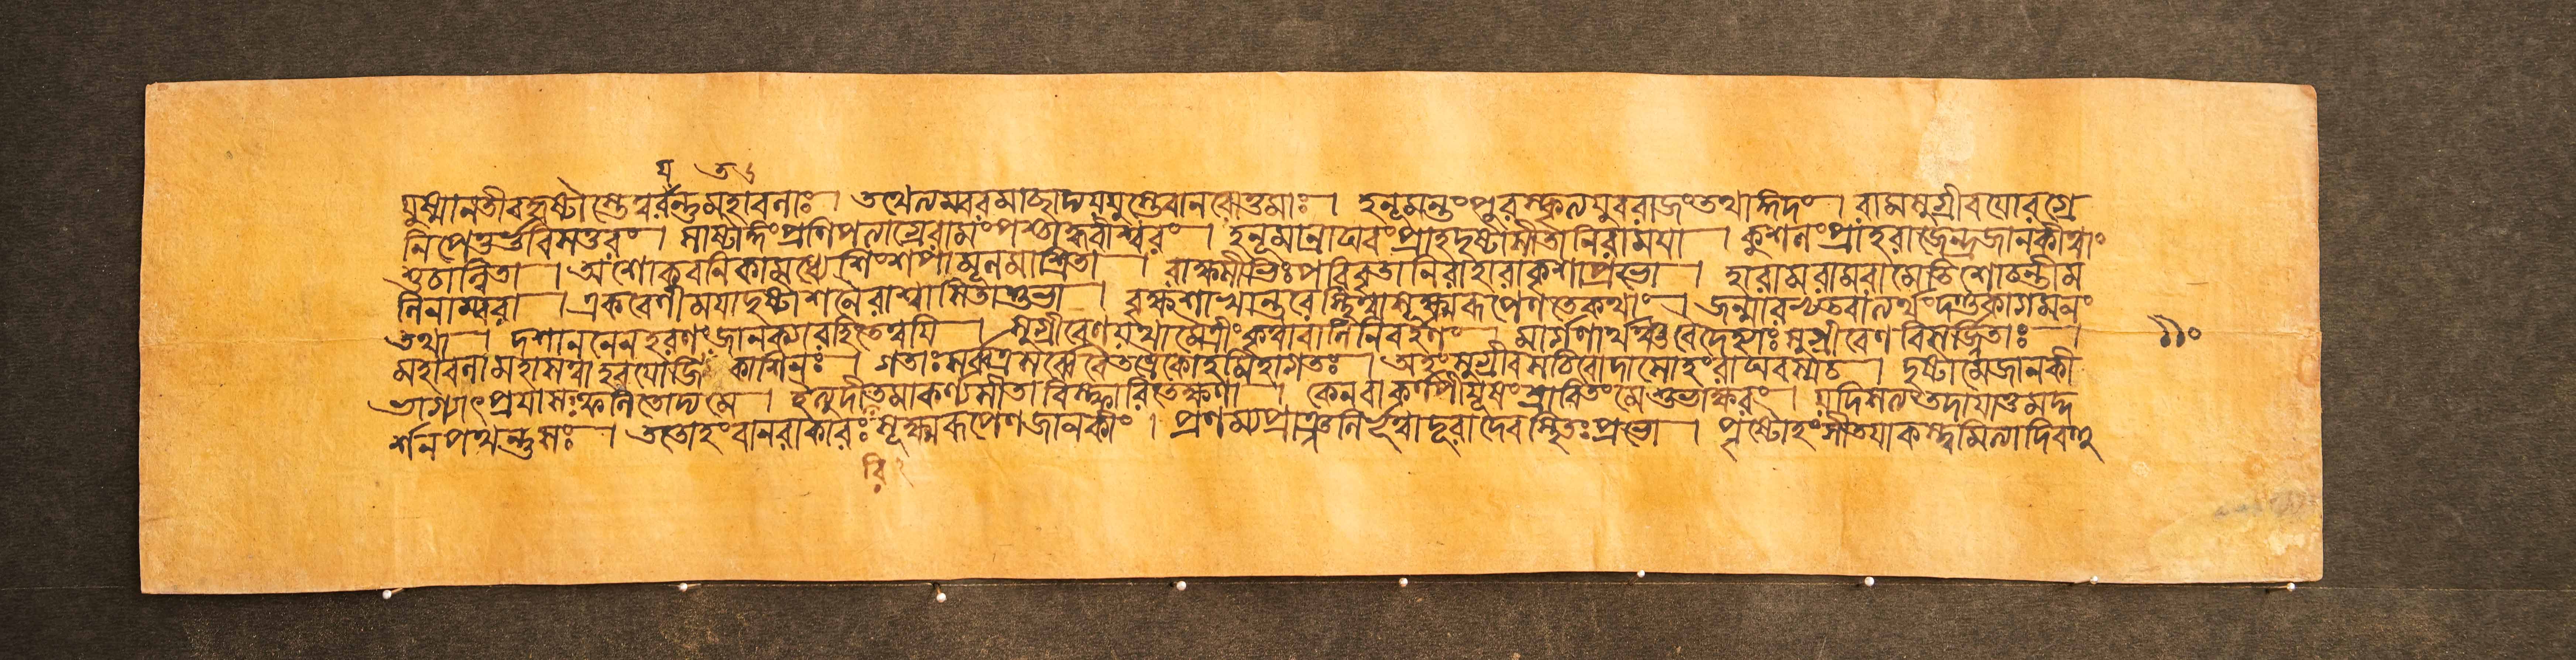 য তে ১
যুষ্মানতীবহৃষ্টাস্তেত্বরন্তুমহাবলাঃ। তথেত্যম্বরমাছাদ্যযযুস্তেবানরোত্তমাঃ। হনূমন্তংপুরস্কৃত্যযুবরাজংতথাঙ্গদং। রামসুগ্রীবযোরগ্রে
নিপেতুর্ভুবিসত্বরং। সাষ্টাঙ্গংপ্রণিপত্যাগ্রেরামংপশ্চাদ্ধরীশ্বরং। হনূমান্রাঘবংপ্রাহদৃষ্টাসীতানিরামযা। কুশলংপ্রাহরাজেন্দ্রজানকীত্বাং
শুচান্বিতা। অশোকবনিকামধ্যেশিংশপামূলমাশ্রিতা। রাক্ষসীভিঃপরিবৃতানিরাহারাকৃশাপ্রভো। হারামরামরামেতিশোচন্তীম
লিনাম্বরা। একবেণীমযাদৃষ্টাশনৈরাশ্বাসিতাশুভা। বৃক্ষশাখান্তরেস্থিত্বাসূক্ষ্মরূপেণতেকথাং। জন্মারভ্যতবাত্যর্থংদণ্ডকাগমনং
তথা। দশাননেনহরণংজানক্যারহিতেত্বযি। সুগ্রীবেণযথামৈত্রীংকৃত্বাবালিনিবর্হণং। মার্গণার্থঞ্চবৈদেহ্যাঃসুগ্রীবেণবিসর্জ্জিতাঃ।
মহাবলামহাসত্বাহরযোজি কাশিনঃ। গতাঃসর্ব্বত্রসর্ব্বেবৈতত্রৈকোহমিহাগতঃ। অহংসুগ্রীবসচিবোদাসোহংরাঘবস্যচ। দৃষ্টামেজানকী
ভাগ্যাৎপ্রযাসঃফলিতোদ্যমে। ইত্যুদীতমাকর্ণ্যসীতাবিস্ফারিতেক্ষণা। কেনবাকর্ণপীযূষংশ্রাবিতংমেশুভাক্ষরং। যদিসত্যংতদাযাতুমদ্দ
র্শনপথন্তুসঃ। ততোহংবানরাকারঃসূক্ষ্মরূপেণজানকীং। প্রণম্যপ্রাঞ্জলির্ভূত্বাদূরাদেবস্থিতঃপ্রভো। পৃষ্টোহংসীতযাকস্ত্বমিত্যাদিবহু
রি ২